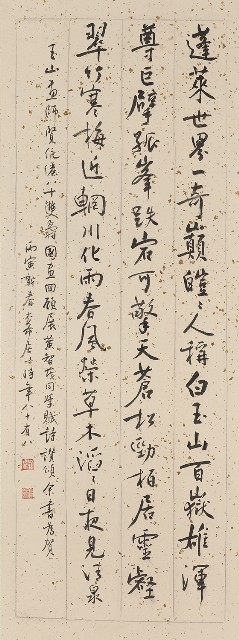 蓬萊世界一奇巔皚皚人稱白玉山百嶽雄渾
尊巨擘孤峯跌宕可擎天蒼松勁柏居靈壑
翠竹寒梅近輞川化雨春風榮草木滔滔日夜見清泉
玉山畫師賢伉儷八十雙壽國畫回顧展黃智茂同學賦詩讚頌余書為賀
丙寅新春 居士時年八十有八